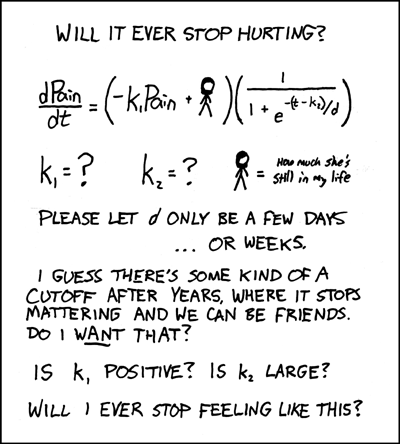 WILL IT EVER STOP HURTING?
dPain/dt = (-k₁Pain + )(1/(1 + e^(-(t-k₂)/d)))
k₁ = ? k₂ = ? = How much she's
still in my life
PLEASE LET d ONLY BE A FEW DAYS
... OR WEEKS.
I GUESS THERE'S SOME KIND OF A
CUTOFF AFTER YEARS, WHERE IT STOPS
MATTERING AND WE CAN BE FRIENDS.
DO I WANT THAT?
IS k₁ POSITIVE? IS k₂ LARGE?
WILL I EVER STOP FEELING LIKE THIS?